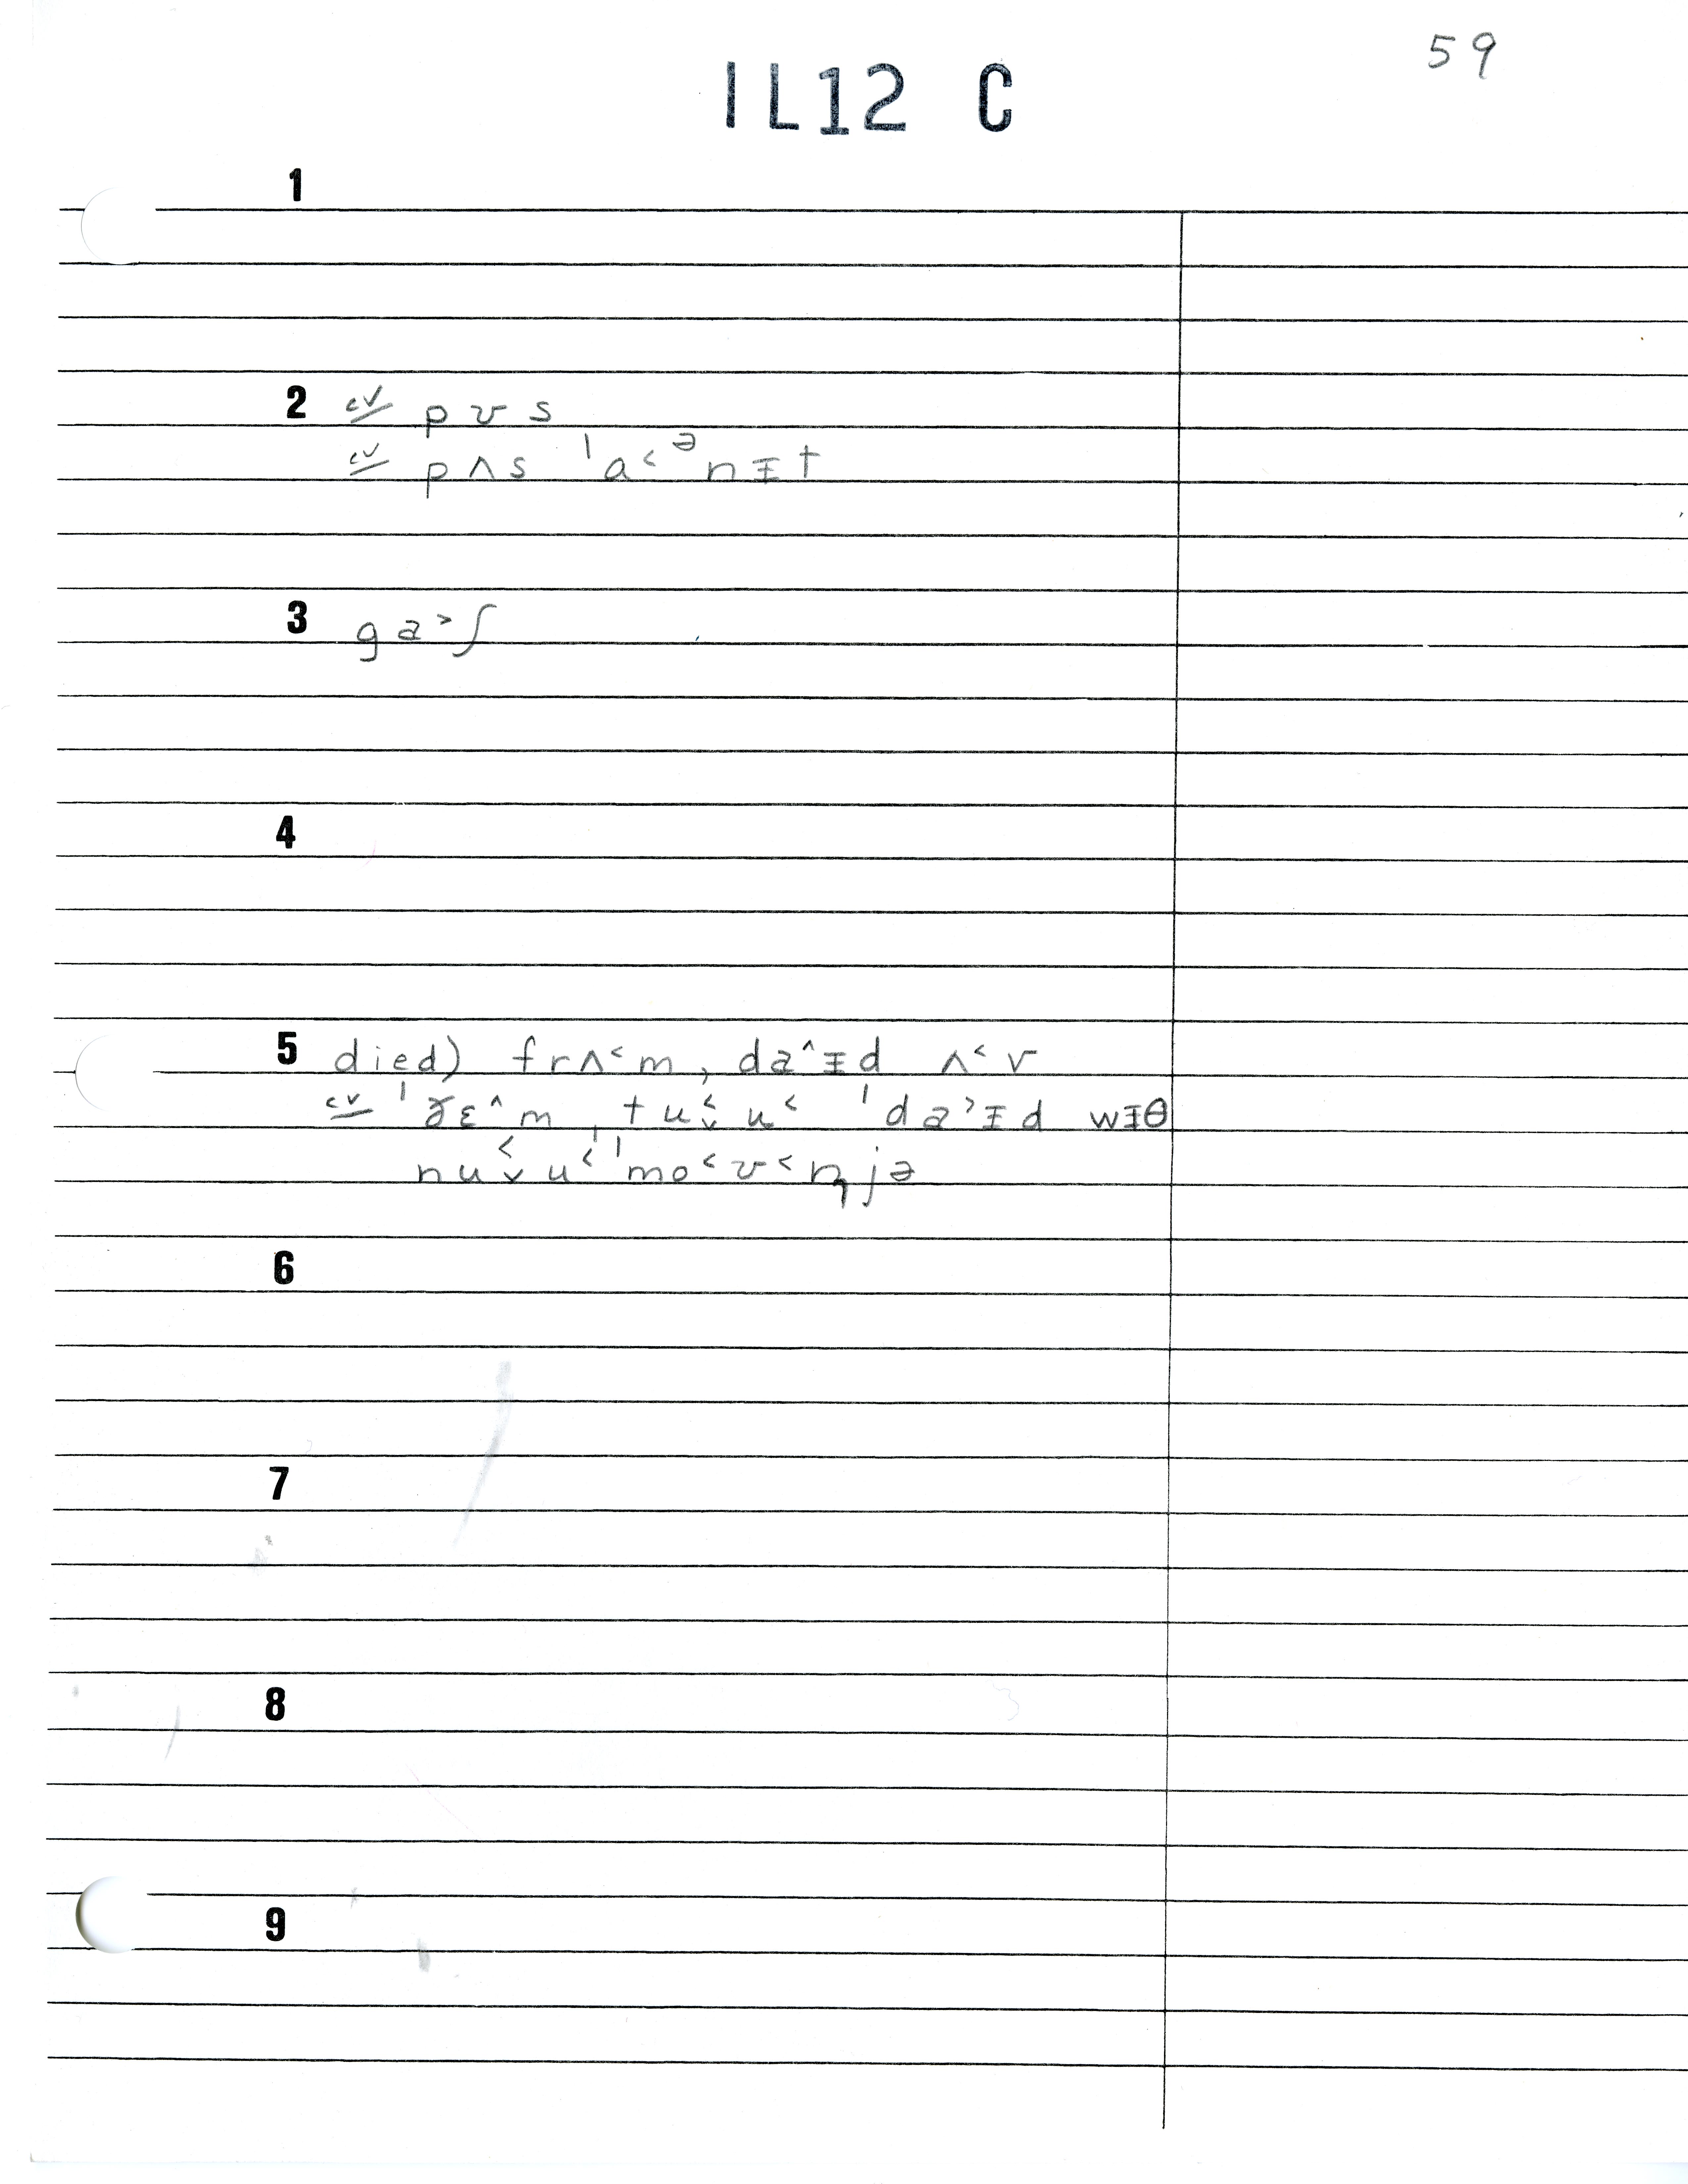 59
IL12 C
1
2 cv p ʊ s
cv p ʌ s ˈa˂ᵊnɪt
3 ga˃ʃ
4
5 died) frʌ˂m, da^ɪd ʌ˂v
cv ˈðɛ^m, tu˂˯u˂ ˈda˃ɪd wɪθ
nu˂˯u˂ ˈmo˂ʊ˂njə
6
7
8
9